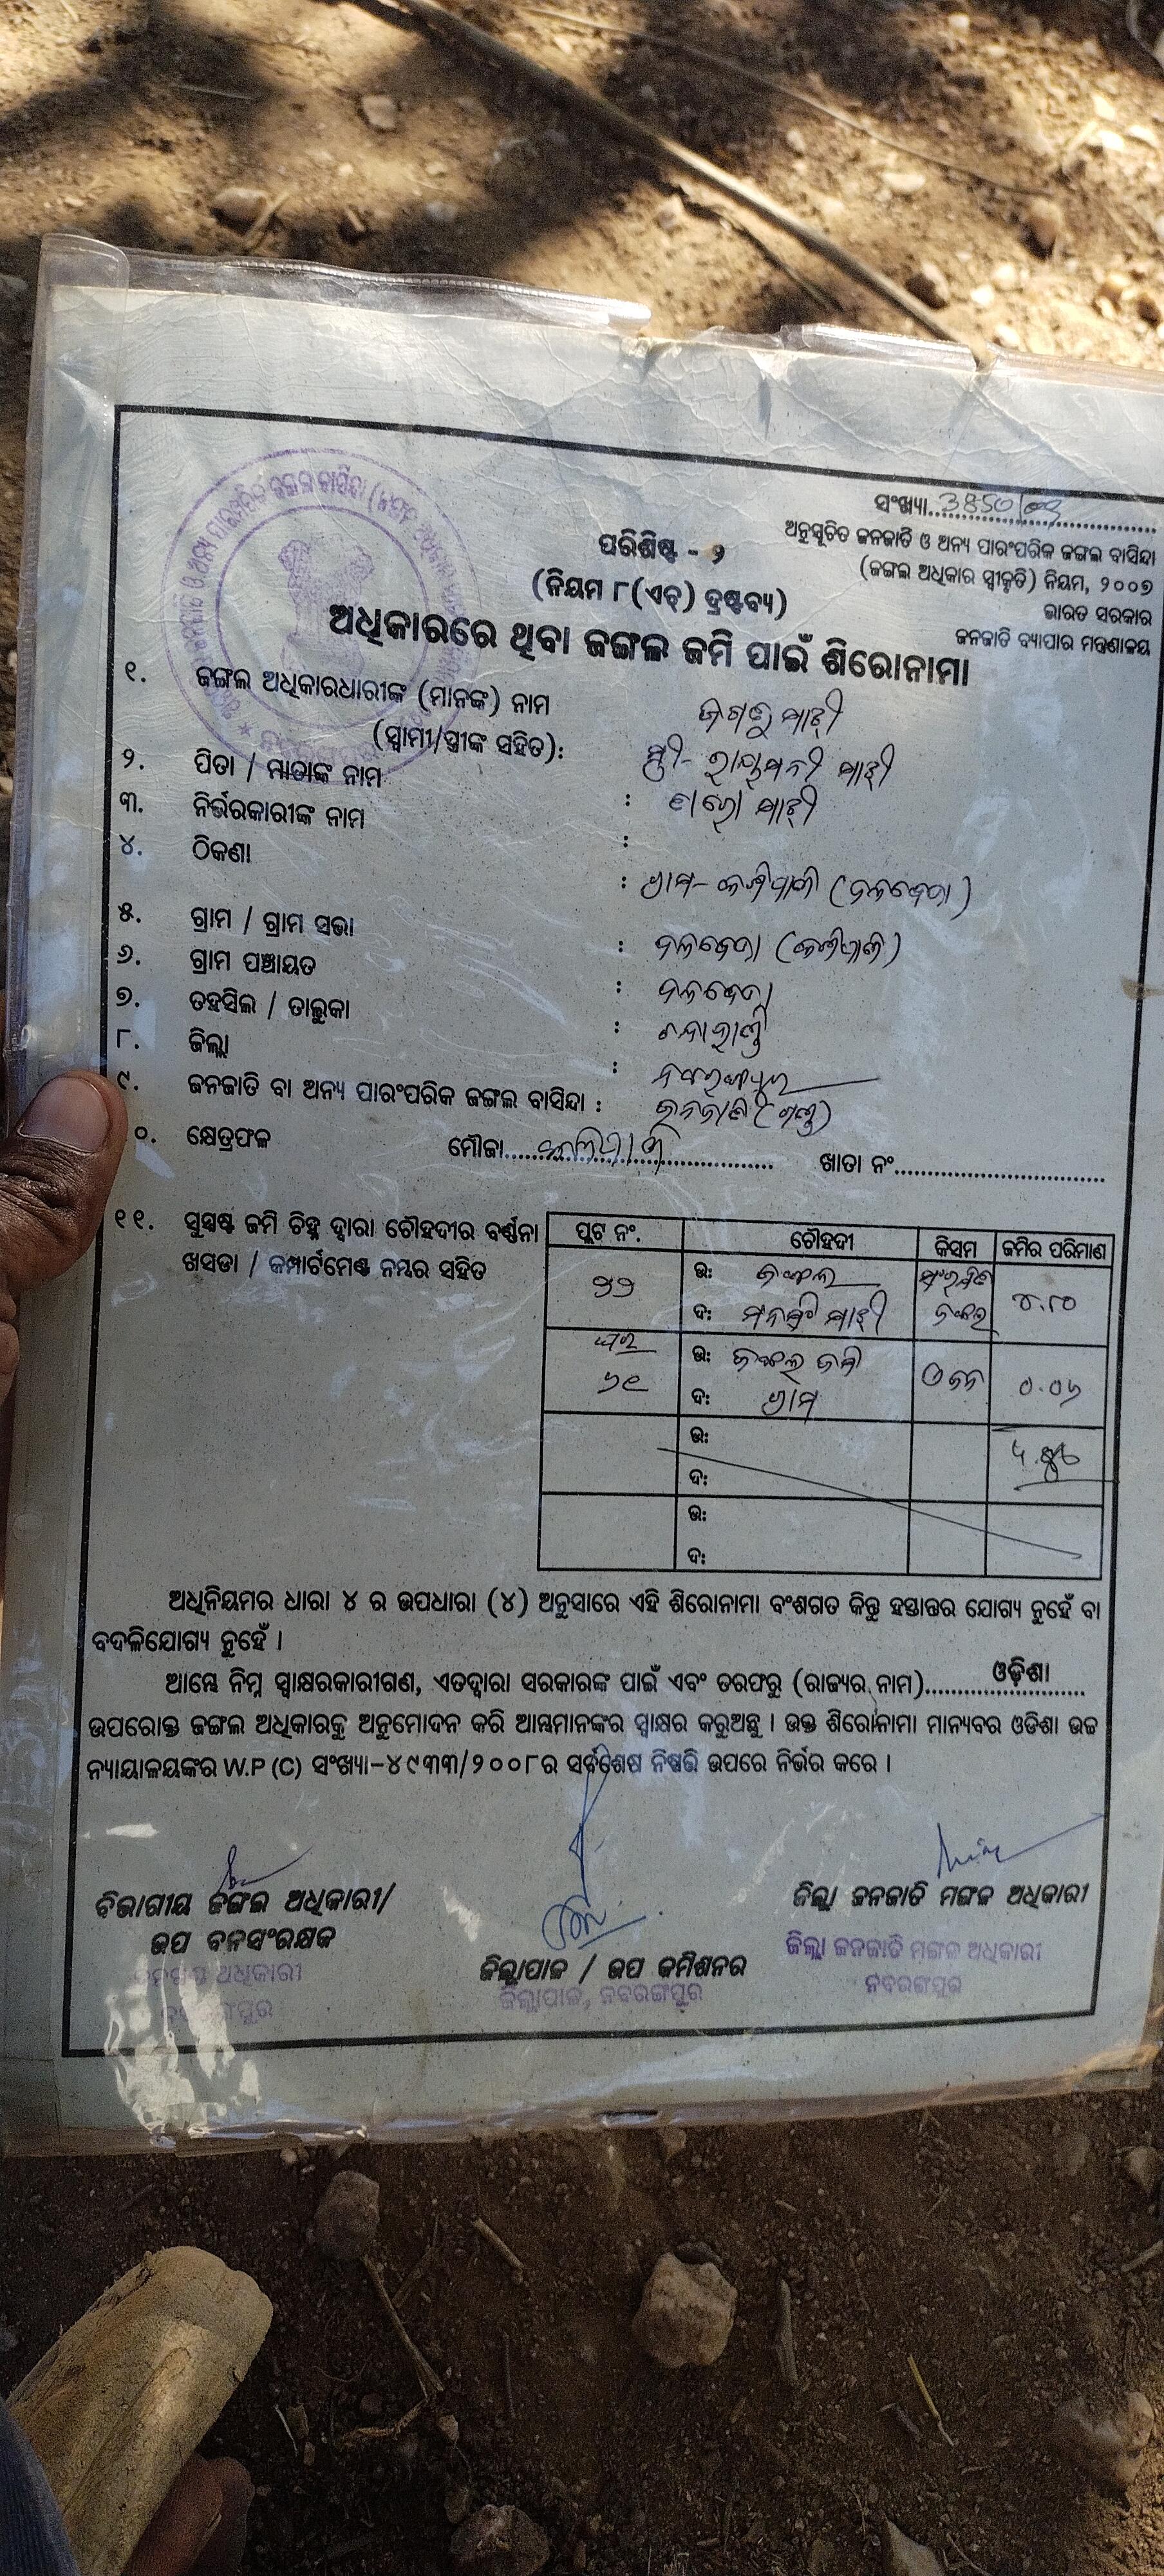 ସଂଖ୍ୟା
ଅନୁସୂଚିତ ଜନଜାତି ଓ ଅନ୍ୟ ପାରଂପରିକ ଜଙ୍ଗଲ ବାସିନ୍ଦା
(ଜଙ୍ଗଲ ଅଧିକାର ସ୍ୱୀକୃତି) ନିୟମ, ୨୦୦୭
ଭାରତ ସରକାର
ଜନଜାତି ବ୍ୟାପାର ମନ୍ତ୍ରଣାଳୟ
ପରିଶିଷ୍ଟ - ୨
(ନିୟମ ୮(ଏଚ୍) ଦ୍ରଷ୍ଟବ୍ୟ)
ଅଧିକାରରେ ଥିବା ଜଙ୍ଗଲ ଜମି ପାଇଁ ଶିରୋନାମା
୧. ଜଙ୍ଗଲ ଅଧିକାରଧାରୀଙ୍କ (ମାନଙ୍କ) ନାମ ଜଗବୁ ମାଝୀ
(ସ୍ୱାମୀ/ସ୍ତ୍ରୀଙ୍କ ସହିତ): ସ୍ତ୍ରୀ- ରାୟମନୀ ମାଝୀ
୨. ପିତା / ମାତାଙ୍କ ନାମ : ମାଝୀ
୩. ନିର୍ଭରକାରୀଙ୍କ ନାମ :
୪. ଠିକଣା : ଗ୍ରାମ-
୫. ଗ୍ରାମ / ଗ୍ରାମ ସଭା :
୬. ଗ୍ରାମ ପଞ୍ଚାୟତ :
୭. ତହସିଲ / ତାଲୁକା :
୮. ଜିଲ୍ଲା : ନବରଙ୍ଗପୁର
୯. ଜନଜାତି ବା ଅନ୍ୟ ପାରଂପରିକ ଜଙ୍ଗଲ ବାସିନ୍ଦା : ଜନଜାତି (ଗଣ୍ଡ)
୦. କ୍ଷେତ୍ରଫଳ ମୌଜା ଖାତା ନଂ
୧୧. ସୁସ୍ପଷ୍ଟ ଜମି ଚିହ୍ନ ଦ୍ୱାରା ଚୌହଦୀର ବର୍ଣ୍ଣନା
ଖସଡା / କମ୍ପାର୍ଟମେଣ୍ଟ ନମ୍ବର ସହିତ
ପ୍ଲଟ ନଂ. ଚୌହଦୀ କିସମ ଜମିର ପରିମାଣ
ଉ: ଜଙ୍ଗଲ
ଦ: ମାଝୀ ଜଙ୍ଗଲ ୪.୮୦
ଉ: ଜଙ୍ଗଲ ଜମି
ଦ: ଗ୍ରାମ ୦.୦୬
ଉ:
ଦ:
ଉ:
ଦ:
ଅଧିନିୟମର ଧାରା ୪ ର ଉପଧାରା (୪) ଅନୁସାରେ ଏହି ଶିରୋନାମା ବଂଶଗତ କିନ୍ତୁ ହସ୍ତାନ୍ତର ଯୋଗ୍ୟ ନୁହେଁ ବା
ବଦଳିଯୋଗ୍ୟ ନୁହେଁ ।
ଆମ୍ଭେ ନିମ୍ନ ସ୍ୱାକ୍ଷରକାରୀଗଣ, ଏତଦ୍ୱାରା ସରକାରଙ୍କ ପାଇଁ ଏବଂ ତରଫରୁ (ରାଜ୍ୟର ନାମ) ଓଡ଼ିଶା
ଉପରୋକ୍ତ ଜଙ୍ଗଲ ଅଧିକାରକୁ ଅନୁମୋଦନ କରି ଆମ୍ଭମାନଙ୍କର ସ୍ୱାକ୍ଷର କରୁଅଛୁ । ଉକ୍ତ ଶିରୋନାମା ମାନ୍ୟବର ଓଡିଶା ଉଚ୍ଚ
ନ୍ୟାୟାଳୟଙ୍କର W.P (C) ସଂଖ୍ୟା-୪୯୩୩/୨୦୦୮ର ସର୍ବଶେଷ ନିଷ୍ପତ୍ତି ଉପରେ ନିର୍ଭର କରେ ।
ବିଭାଗୀୟ ଜଙ୍ଗଲ ଅଧିକାରୀ/
ଉପ ବନସଂରକ୍ଷକ
ଜିଲ୍ଲାପାଳ / ଉପ କମିଶନର
ଜିଲ୍ଲାପାଳ, ନବରଙ୍ଗପୁର
ଜିଲ୍ଲା ଜନଜାତି ମଙ୍ଗଳ ଅଧିକାରୀ
ଜିଲ୍ଲା ଜନଜାତି ମଙ୍ଗଳ ଅଧିକାରୀ
ନବରଙ୍ଗପୁର